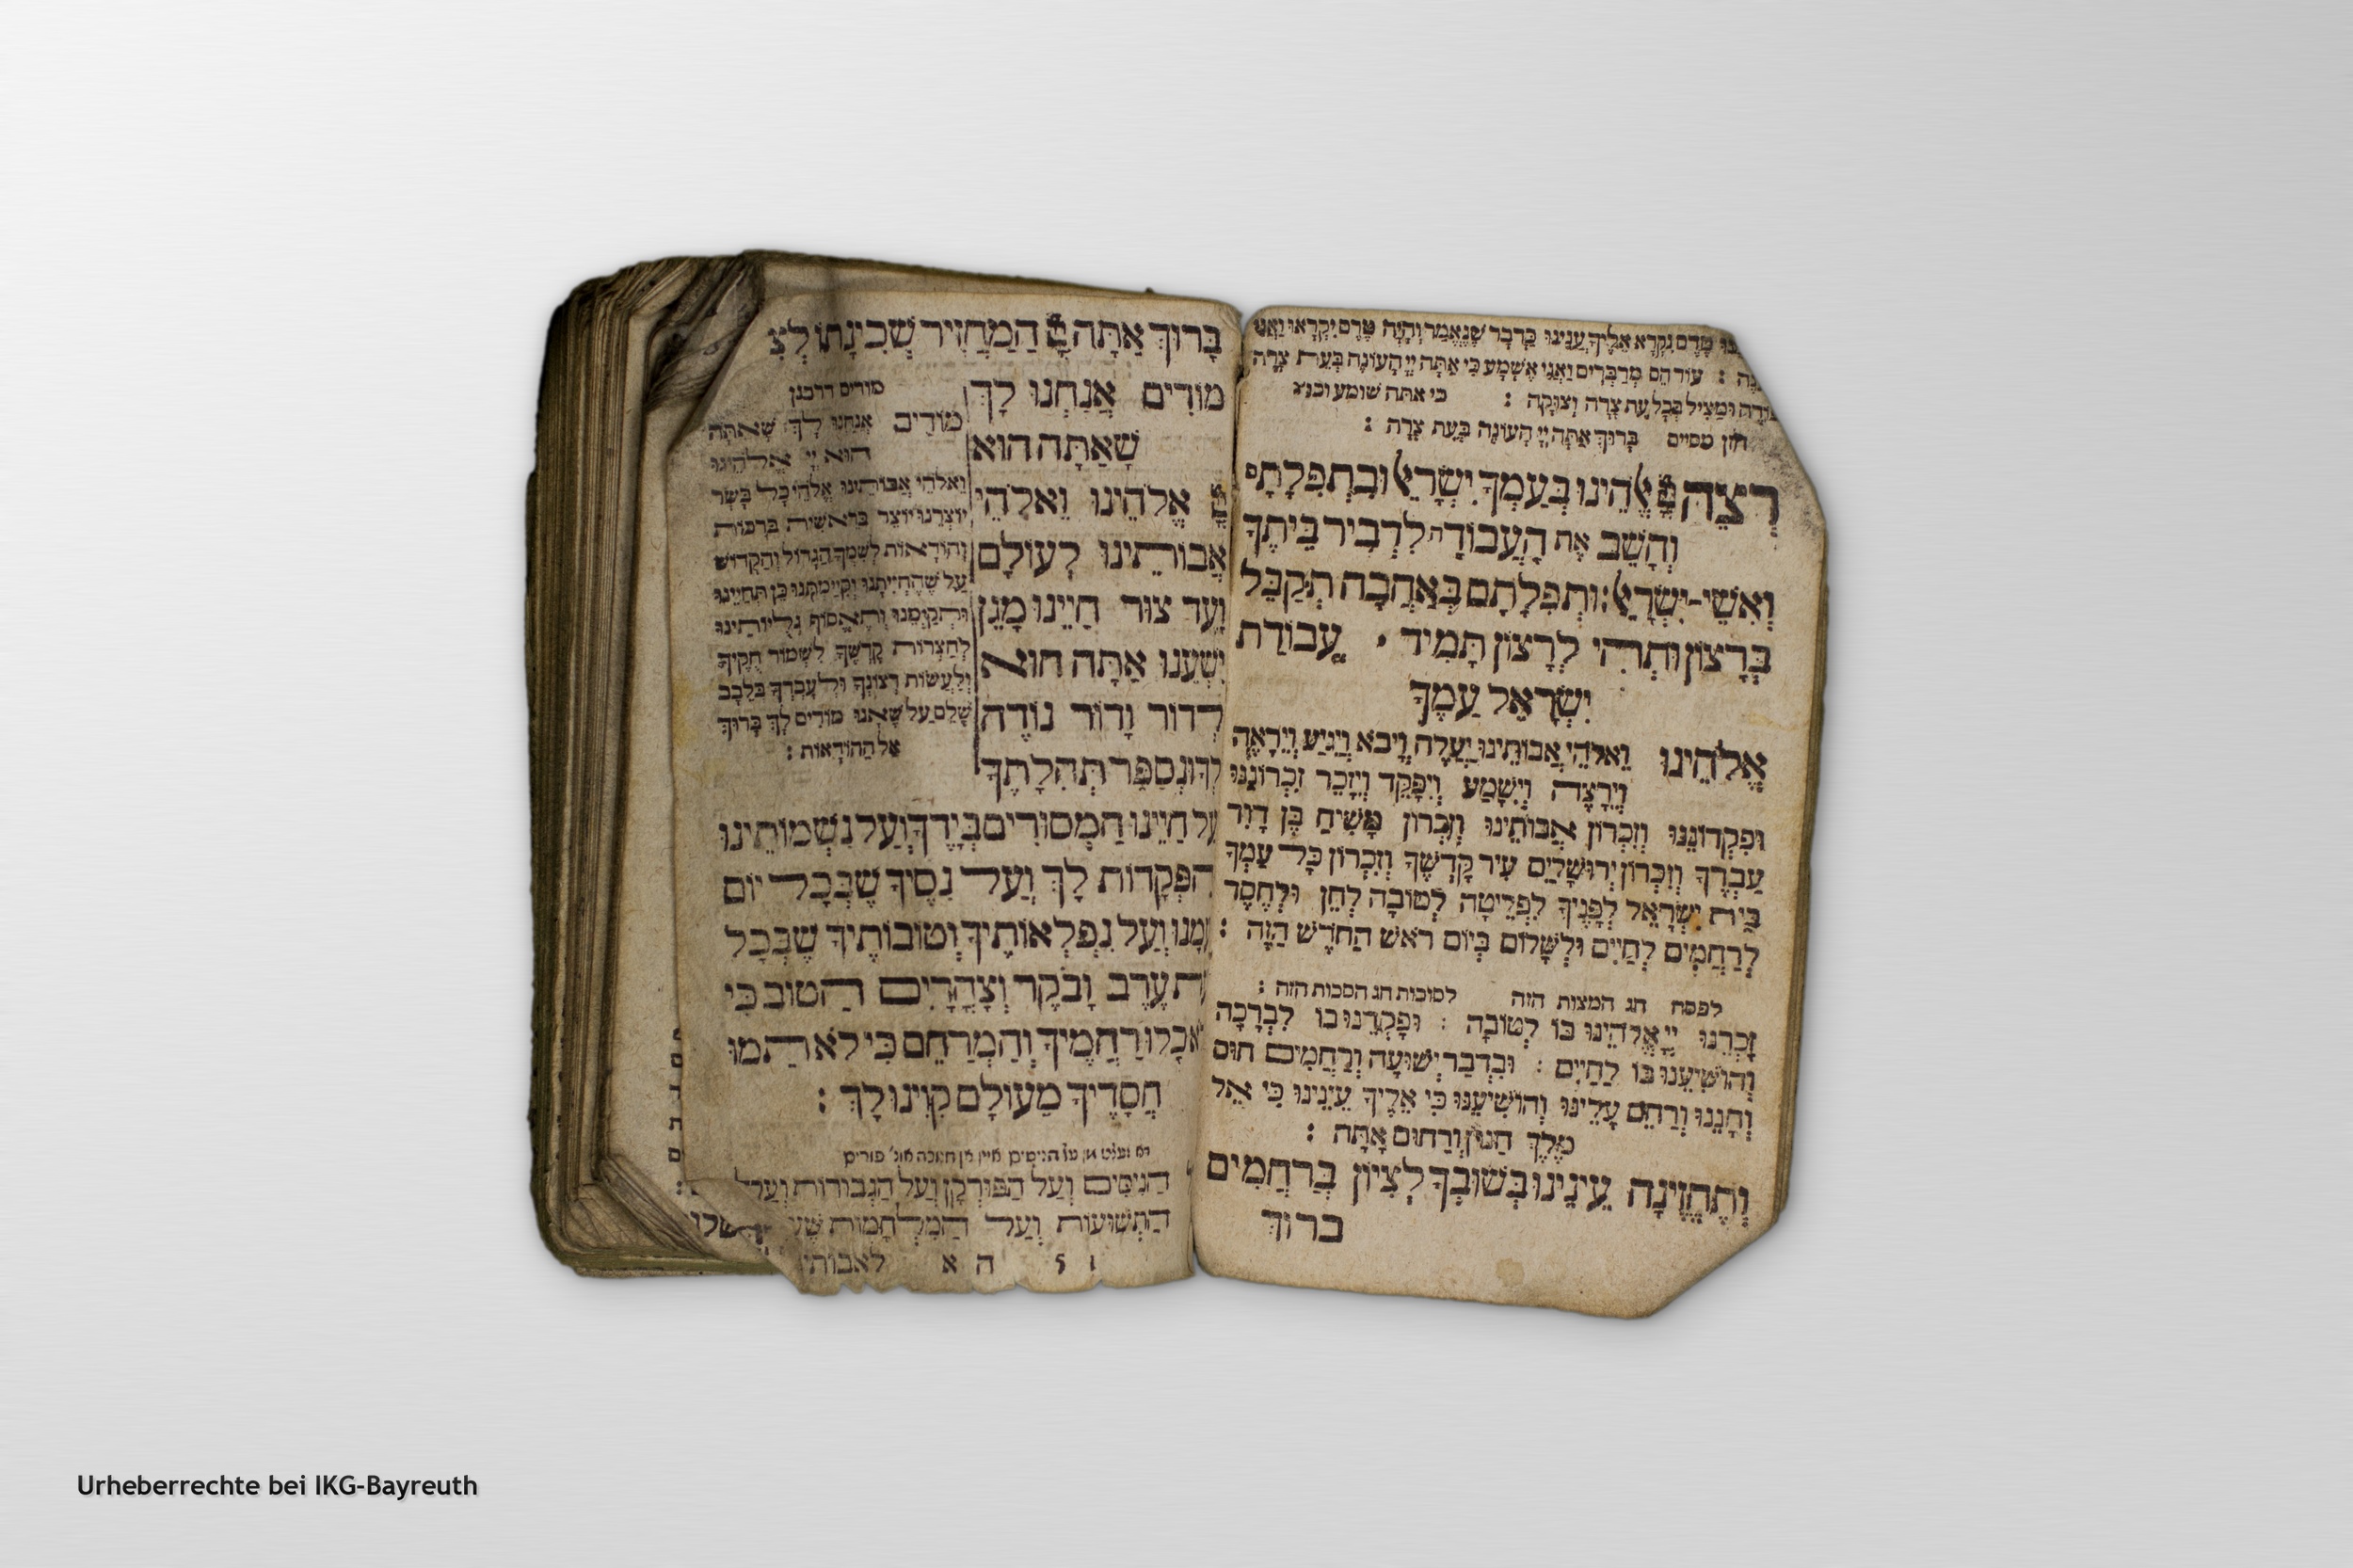 טֶרֶם נִקְרָא אֵלֶיךָ עֲנֵינוּ כַּדָּבָר שֶׁנֶּאֱמַר וְהָיָה טֶרֶם יִקְרָאוּ וַאֲנִי
עוֹד הֵם מְדַבְּרִים וַאֲנִי אֶשְׁמָע כִּי אַתָּה יְיָ הָעוֹנֶה בְּעֵת צָרָה
וּמַצִּיל בְּכָל עֵת צָרָה וְצוּקָה : כי אתה שומע וכו׳
חזן מסיים בָּרוּךְ אַתָּה יְיָ הָעוֹנֶה בְּעֵת צָרָה :
רְצֵה יְיָ אֱלֹהֵינוּ בְּעַמְּךָ יִשְׂרָאֵל וּבִתְפִלָּתָם
וְהָשֵׁב אֶת הָעֲבוֹדָה לִדְבִיר בֵּיתֶךָ
וְאִשֵּׁי-יִשְׂרָאֵל: וּתְפִלָּתָם בְּאַהֲבָה תְקַבֵּל
בְּרָצוֹן וּתְהִי לְרָצוֹן תָּמִיד עֲבוֹדַת
יִשְׂרָאֵל עַמֶּךָ
אֱלֹהֵינוּ וֵאלֹהֵי אֲבוֹתֵינוּ יַעֲלֶה וְיָבֹא וְיַגִּיעַ וְיֵרָאֶה
וְיֵרָצֶה וְיִשָּׁמַע וְיִפָּקֵד וְיִזָּכֵר זִכְרוֹנֵנוּ
וּפִקְדוֹנֵנוּ וְזִכְרוֹן אֲבוֹתֵינוּ וְזִכְרוֹן מָשִׁיחַ בֶּן דָּוִד
עַבְדֶּךָ וְזִכְרוֹן יְרוּשָׁלַיִם עִיר קָדְשֶׁךָ וְזִכְרוֹן כָּל עַמְּךָ
בֵּית יִשְׂרָאֵל לְפָנֶיךָ לִפְלֵיטָה לְטוֹבָה לְחֵן וּלְחֶסֶד
לְרַחֲמִים לְחַיִּים וּלְשָׁלוֹם בְּיוֹם רֹאשׁ הַחֹדֶשׁ הַזֶּה :
לפסח חג המצות הזה לסוכות חג הסכות הזה :
זָכְרֵנוּ יְיָ אֱלֹהֵינוּ בּוֹ לְטוֹבָה : וּפָקְדֵנוּ בוֹ לִבְרָכָה
וְהוֹשִׁיעֵנוּ בוֹ לְחַיִּים : וּבִדְבַר יְשׁוּעָה וְרַחֲמִים חוּס
וְחָנֵּנוּ וְרַחֵם עָלֵינוּ וְהוֹשִׁיעֵנוּ כִּי אֵלֶיךָ עֵינֵינוּ כִּי אֵל
מֶלֶךְ חַנּוּן וְרַחוּם אָתָּה :
וְתֶחֱזֶינָה עֵינֵינוּ בְּשׁוּבְךָ לְצִיּוֹן בְּרַחֲמִים
ברוך
בָּרוּךְ אַתָּה יְיָ הַמַּחֲזִיר שְׁכִינָתוֹ לְצִ
מוֹדִים אֲנַחְנוּ לָךְ
שָׁאַתָּה הוּא
יְיָ אֱלֹהֵינוּ וֵאלֹהֵי
אֲבוֹתֵינוּ לְעוֹלָם
וָעֶד צוּר חַיֵּינוּ מָגֵן
יִשְׁעֵנוּ אַתָּה הוּא
לְדוֹר וָדוֹר נוֹדֶה
לְךָ וּנְסַפֵּר תְּהִלָּתֶךָ
מודים דרבנן
מוֹדִים אֲנַחְנוּ לָךְ שָׁאַתָּה
הוּא יְיָ אֱלֹהֵינוּ
וֵאלֹהֵי אֲבוֹתֵינוּ אֱלֹהֵי כָל בָּשָׂר
יוֹצְרֵנוּ יוֹצֵר בְּרֵאשִׁית בְּרָכוֹת
וְהוֹדָאוֹת לְשִׁמְךָ הַגָּדוֹל וְהַקָּדוֹשׁ
עַל שֶׁהֶחֱיִיתָנוּ וְקִיַּמְתָּנוּ כֵּן תְּחַיֵּינוּ
וּתְקַיְּמֵנוּ וְתֶאֱסוֹף גָּלֻיּוֹתֵינוּ
לְחַצְרוֹת קָדְשֶׁךָ לִשְׁמוֹר חֻקֶּיךָ
וְלַעֲשׂוֹת רְצוֹנֶךָ וּלְעָבְדְּךָ בְּלֵבָב
שָׁלֵם עַל שֶׁאָנוּ מוֹדִים לָךְ בָּרוּךְ
אֵל הַהוֹדָאוֹת :
עַל חַיֵּינוּ הַמְּסוּרִים בְּיָדֶךָ וְעַל נִשְׁמוֹתֵינוּ
הַפְּקֻדוֹת לָךְ וְעַל נִסֶּיךָ שֶׁבְּכָל יוֹם
עִמָּנוּ וְעַל נִפְלְאוֹתֶיךָ וְטוֹבוֹתֶיךָ שֶׁבְּכָל
עֵת עֶרֶב וָבֹקֶר וְצָהֳרָיִם הַטּוֹב כִּי
לֹא כָלוּ רַחֲמֶיךָ וְהַמְרַחֵם כִּי לֹא תַמּוּ
חֲסָדֶיךָ מֵעוֹלָם קִוִּינוּ לָךְ :
הַנִּסִּים וְעַל הַפּוּרְקָן וְעַל הַגְּבוּרוֹת וְעַל
הַתְּשׁוּעוֹת וְעַל הַמִּלְחָמוֹת
ה א לאבותי
Urheberrechte bei IKG-Bayreuth